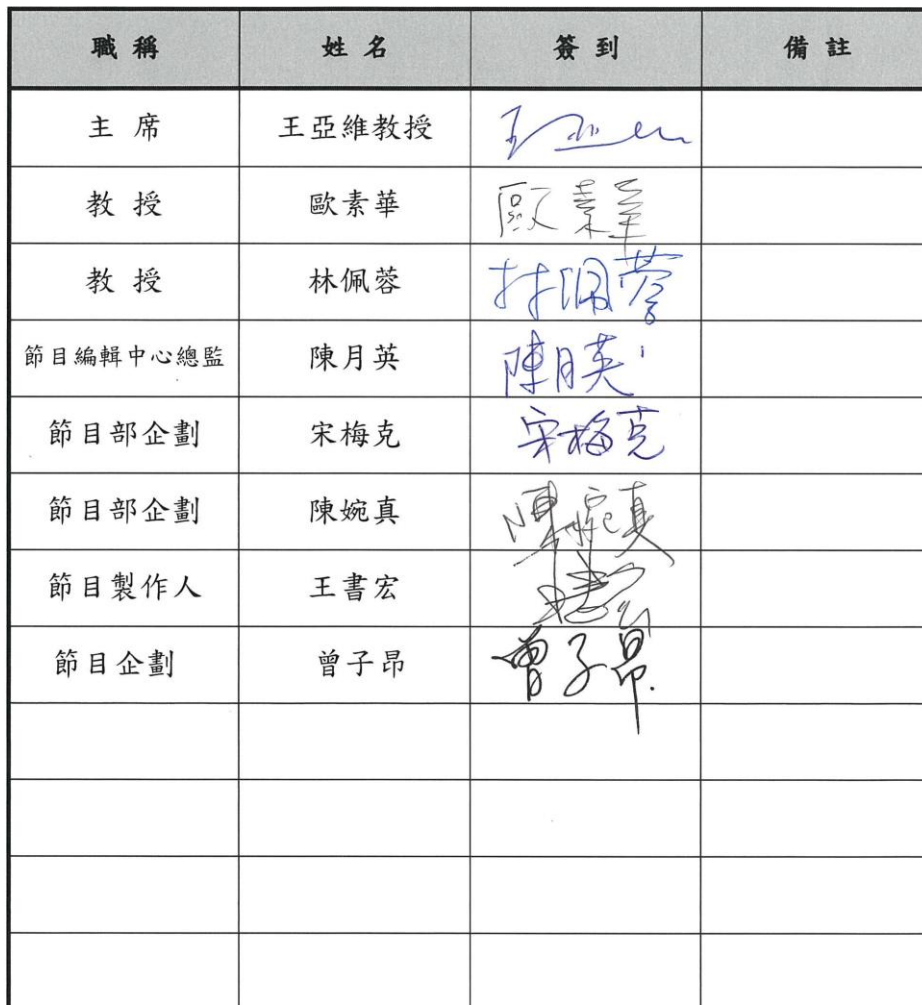 職稱 姓名 簽到 備註
主席 王亞維教授 王亞維
教授 歐素華 歐素華
教授 林佩蓉 林佩蓉
節目編輯中心總監 陳月英 陳月英
節目部企劃 宋梅克 宋梅克
節目部企劃 陳婉真 陳婉真
節目製作人 王書宏
節目企劃 曾子昂 曾子昂